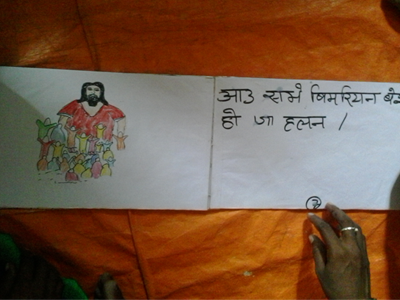 आउ सभे बिमरियन बेस
हो जा हलन /
३